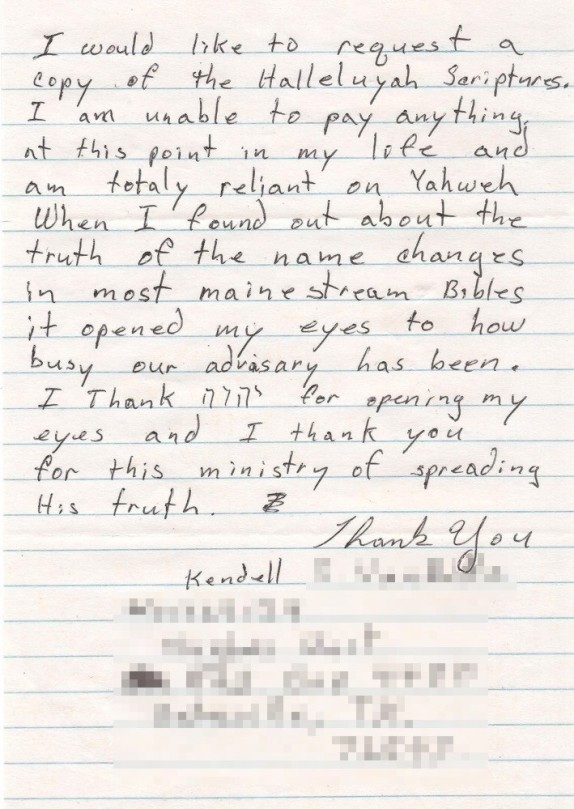 I would like to request a
copy of the Halleluyah Scriptures.
I am unable to pay anything
at this point in my life and
am totaly reliant on Yahweh
When I found out about the
truth of the name changes
in most mainestream Bibles
it opened my eyes to how
busy our advisary has been.
I Thank יהוה for opening my
eyes and I thank you
for this ministry of spreading
His truth.
Thank You
Kendell